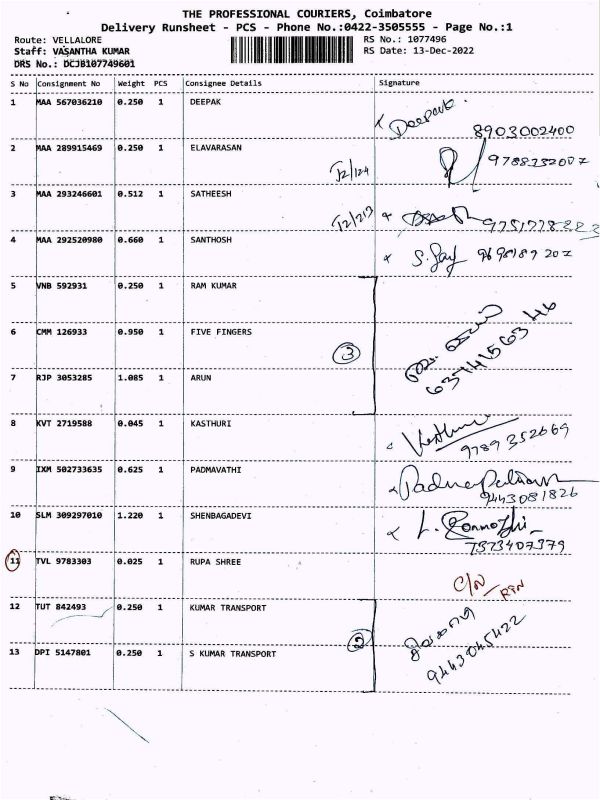 THE PROFESSIONAL COURIERS, Coimbatore
Delivery Runsheet - PCS - Phone No.:0422-3505555 - Page No.:1
Route: VELLALORE RS No.: 1077496
Staff: VASANTHA KUMAR RS Date: 13-Dec-2022
DRS No.: DCJB107749601
S No Consignment No Weight PCS Consignee Details Signature
1 MAA 567036210 0.250 1 DEEPAK Deepak 8903002400
2 MAA 289915469 0.250 1 ELAVARASAN T2/124
3 MAA 293246601 0.512 1 SATHEESH T2/213
4 MAA 292520980 0.660 1 SANTHOSH
5 VNB 592931 0.250 1 RAM KUMAR
6 CMM 126933 0.950 1 FIVE FINGERS 3
7 RJP 3053285 1.085 1 ARUN
8 KVT 2719588 0.045 1 KASTHURI 9789352669
9 IXM 502733635 0.625 1 PADMAVATHI 9443081826
10 SLM 309297010 1.220 1 SHENBAGADEVI 7373407379
11 TVL 9783303 0.025 1 RUPA SHREE C/N RTN
12 TUT 842493 0.250 1 KUMAR TRANSPORT
2
13 DPI 5147801 0.250 1 S KUMAR TRANSPORT 9443045422